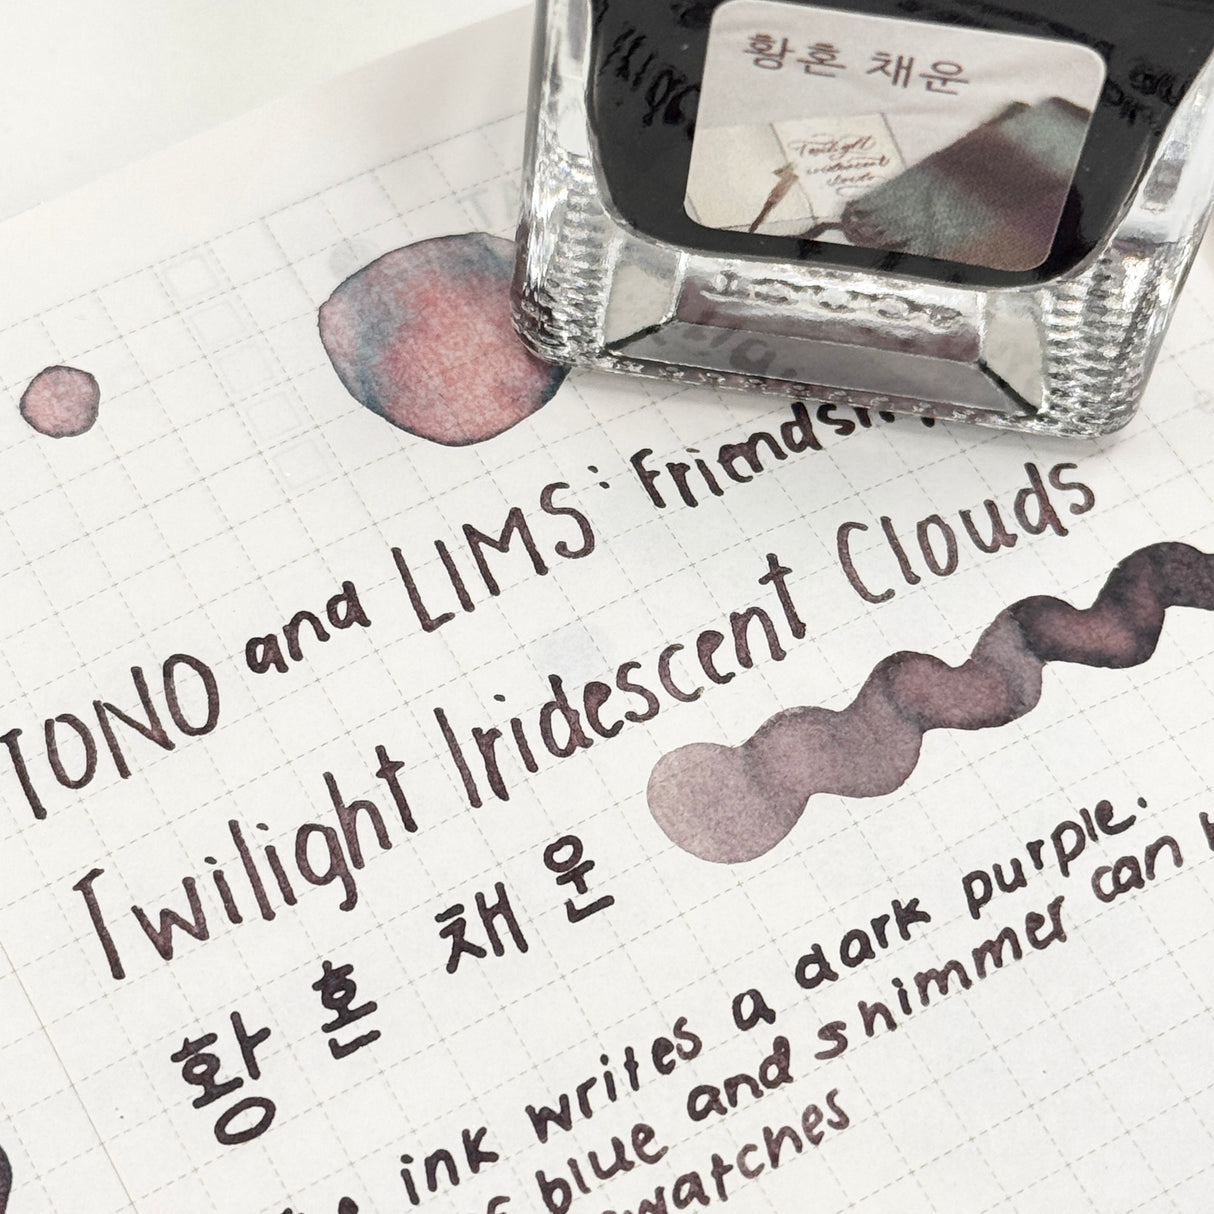 황혼 채운
Twilight
iridescent
clouds
TONO and LIMS: Friendship
Twilight Iridescent Clouds
황혼 채운
ink writes a dark purple.
of blue and shimmer can
swatches